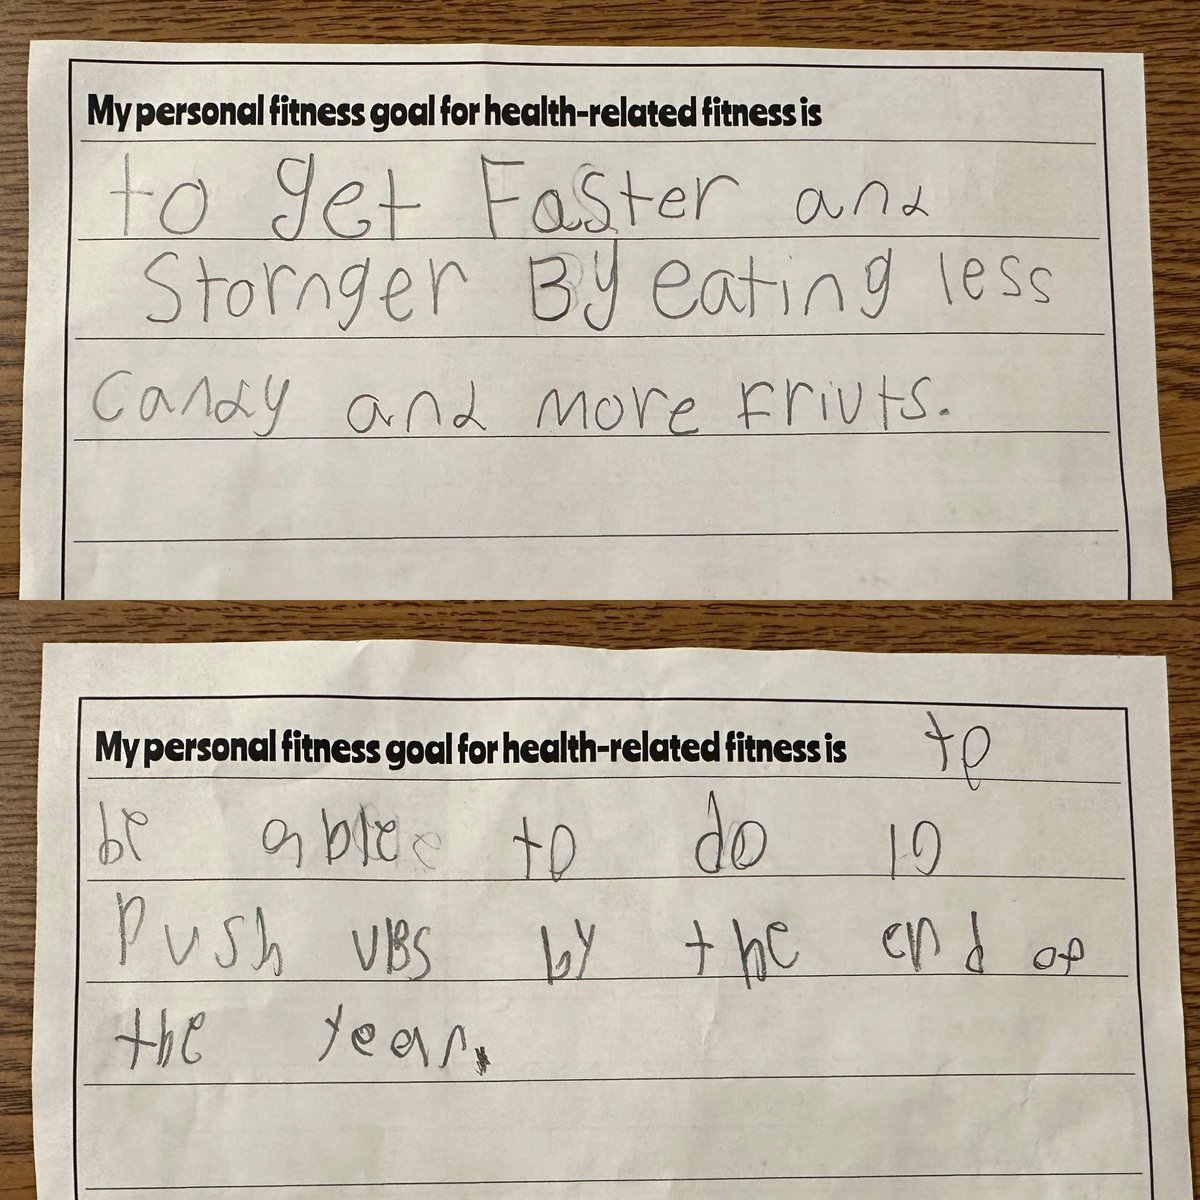 My personal fitness goal for health-related fitness is
to get Faster and
Stornger By eating less
candy and more Frivts.
My personal fitness goal for health-related fitness is to
be able to do 10
Push UBS by the end of
the year.